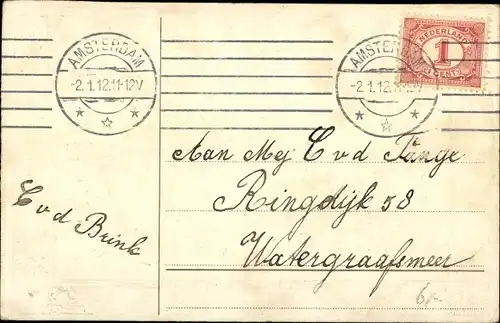 AMSTERDAM
-2.1.12.11-12V
AMSTERDAM
-2.1.12.11-12V
NEDERLAND
1
CENT
Aan Mej C v d Tänge
Ringdijk 58
Watergraafsmeer
C v d Brink
6,-